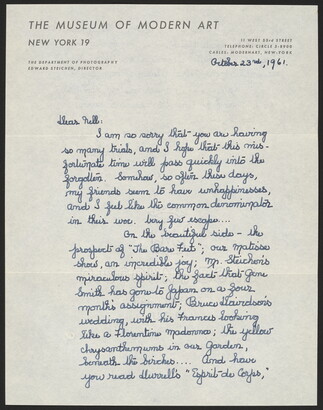 THE MUSEUM OF MODERN ART
NEW YORK 19
11 WEST 53rd STREET
TELEPHONE: CIRCLE 5-8900
CABLES: MODERNART, NEW-YORK
THE DEPARTMENT OF PHOTOGRAPHY
EDWARD STEICHEN, DIRECTOR
October 23rd, 1961.
Dear Nell:
I am so sorry that you are having
so many trials, and I hope that this mis-
fortunate time will pass quickly into the
forgotten. Somehow, so often these days,
my friends seem to have unhappinesses,
and I feel like the common denominator
in this woe. Very few escape....
On the beautiful side - the
prospect of "The Bare Feet"; our Matisse
show, an incredible joy; Mr. Steichen's
miraculous spirit; the fact that Gene
Smith has gone to Japan on a four
month's assignment; Bruce Davidson's
wedding, with his Frances looking
like a Florentine madonna; the yellow
chrysanthemums in our Garden,
beneath the birches.... And have
you read Durrell's "Esprit de Corps,"